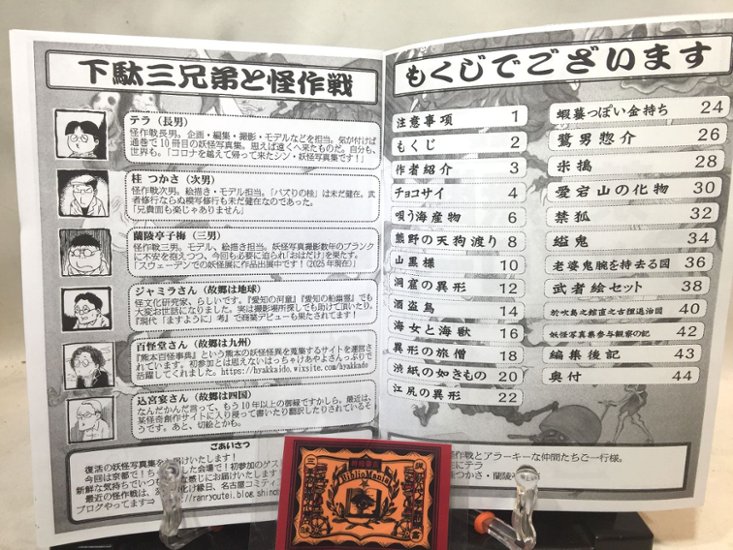 下駄三兄弟と怪作戦
テラ(長男)
怪作戦長男。企画・編集・撮影・モデルなどを担当。気が付けば
通巻で10冊目の妖怪写真集。思えば遠くへ来たものだ。自分も、
世界も。「コロナを越えて帰って来たシン・妖怪写真集です!」
桂 つかさ(次男)
怪作戦次男。絵描き・モデル担当。「バズりの桂」は未だ健在。武
者修行ならぬ模写修行も未だ健在なのであった。
「兄貴面も楽じゃありません」
蘭陵亭子梅(三男)
怪作戦三男。モデル、絵描き担当。妖怪写真撮影数年のブランク
に不安を抱えつつ、今回も必要に迫られ「おはだけ」を果たす。
「スウェーデンでの妖怪展に作品出展中です!(2025年現在)」
ジャミラさん(故郷は地球)
怪文化研究家、らしいです。『愛知の河童』『愛知の船幽霊』でも
大変お世話になりました。実は撮影場所探しでも助けて頂いたり。
『現代「ますように」考』で商業デビューも果たされてます!
百怪堂さん(故郷は九州)
『熊本百怪事典』という熊本の妖怪怪異を蒐集するサイトを運営さ
れています。初参加とは思えないはっちゃけあやよさんっぷりで
活躍してくれました。https://hyakkaido.wixsite.com/hyakkado
込宮宴さん(故郷は四国)
なんだかんだ言って、もう10年以上の御縁ですかしら。最近は、
某怪奇創作サイトに入り浸って書いたり翻訳したりされているそ
うです。あと、切絵とかも。
ごあいさつ
復活の妖怪写真集をお届けいたします!
今回は京都で!ち
した会場で!初参加のゲス
新鮮な気持ちでいつも
な感じにお届けいたします
最近の怪作戦は、
化け縁日、名古屋コミティ
ブログやってます⇒
//ranryoutei.blog.shino
もくじでございます
注意事項 1
もくじ 2
作者紹介 3
チョコサイ 4
唄う海産物 6
熊野の天狗渡り 8
山黒様 10
洞窟の異形 12
酒盗鳥 14
海女と海獣 16
異形の旅僧 18
渋紙の如きもの 20
江尻の異形 22
蝦蟇っぽい金持ち 24
鷺男惣介 26
米搗 28
愛宕山の化物 30
禁狐 32
縊鬼 34
老婆鬼腕を持去る図 36
武者絵セット 38
於吹島之館直之古狸退治図 40
妖怪写真集参与観察の記 42
編集後記 43
奥付 44
怪作戦とアラーキーな仲間たちご一行様。
にテラ
つかさ・蘭陵
BiblioMania